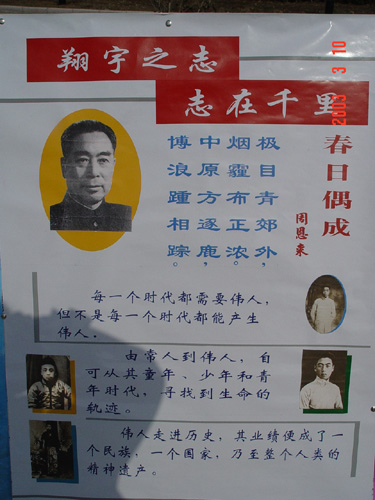 翔宇之志
志在千里
2003 3 10
春日偶成
周恩来
极目青郊外，
烟霾布正浓。
中原方逐鹿，
博浪踵相踪。
每一个时代都需要伟人，
但不是每一个时代都能产生
伟人．
由常人到伟人，自
可从其童年、少年和青
年时代，寻找到生命的
轨迹。
伟人走进历史，其业绩便成了一
个民族，一个国家，乃至整个人类的
精神遗产。